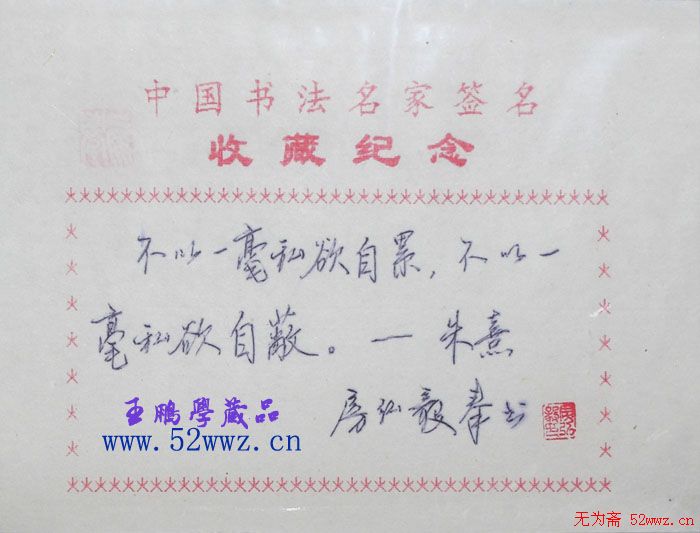 中国书法名家签名
收藏纪念
不以一毫私欲自累,不以一
毫私欲自蔽。一朱熹
房弘毅奉书
王鹏學藏品
www.52wwz.cn
无为斋 52wwz.cn